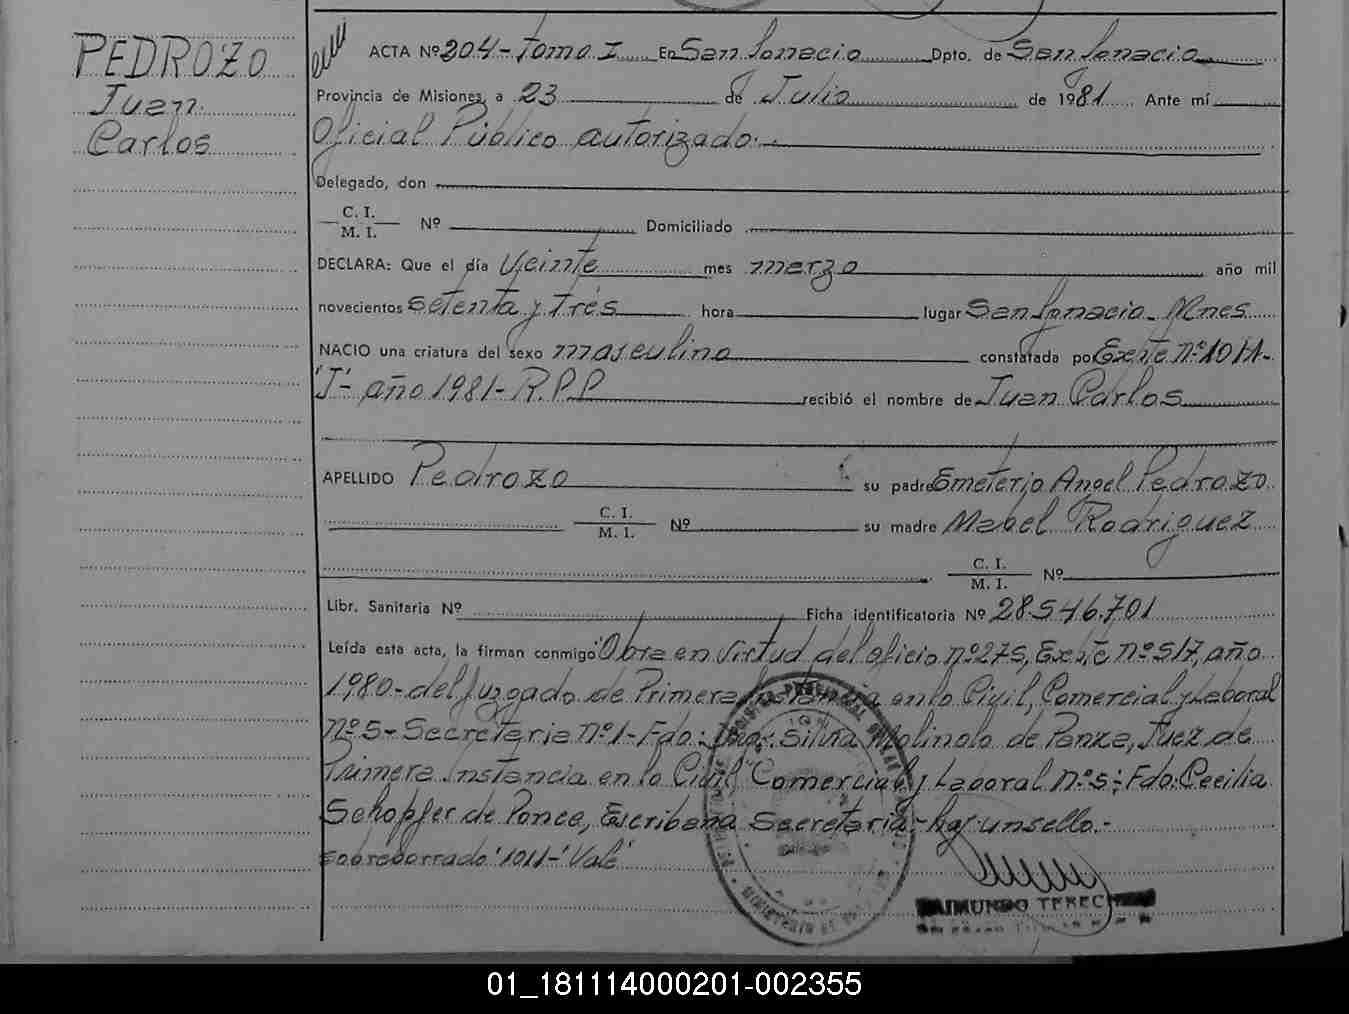 PEDROZO
Juan
Carlos
ACTA Nº 204 - Tomo I En San Ignacio Dpto. de San Ignacio
Provincia de Misiones, a 23 de Julio de 1981 Ante mí
Oficial Público autorizado.-
Delegado, don
C. I.
M. I. Nº Domiciliado
DECLARA: Que el día Veinte mes marzo año mil
novecientos setenta y tres hora lugar San Ignacio - Mnes
NACIO una criatura del sexo masculino constatada por Expte Nº 1011-
'J'- año 1981 - R.P.P recibió el nombre de Juan Carlos
APELLIDO Pedrozo su padre Emeterio Angel Pedrozo
C. I.
M. I. Nº su madre Mabel Rodriguez
C. I.
M. I. Nº
Libr. Sanitaria Nº Ficha identificatoria Nº 28.546.701
Leída esta acta, la firman conmigo Obra en virtud del oficio nº 275, Expte nº 517, año
1980 - del Juzgado de Primera Instancia en lo Civil, Comercial y Laboral
Nº 5 - Secretaria nº 1 - Fdo: Silvia Molinolo de Panza, Juez de
Primera Instancia en lo Civil Comercial y Laboral nº 5; Fdo: Cecilia
Schopfer de Ponce, Escribana Secretaria.- hay un sello.-
sobreborrado '1011-' Vale'
RAIMUNDO
01_181114000201-002355